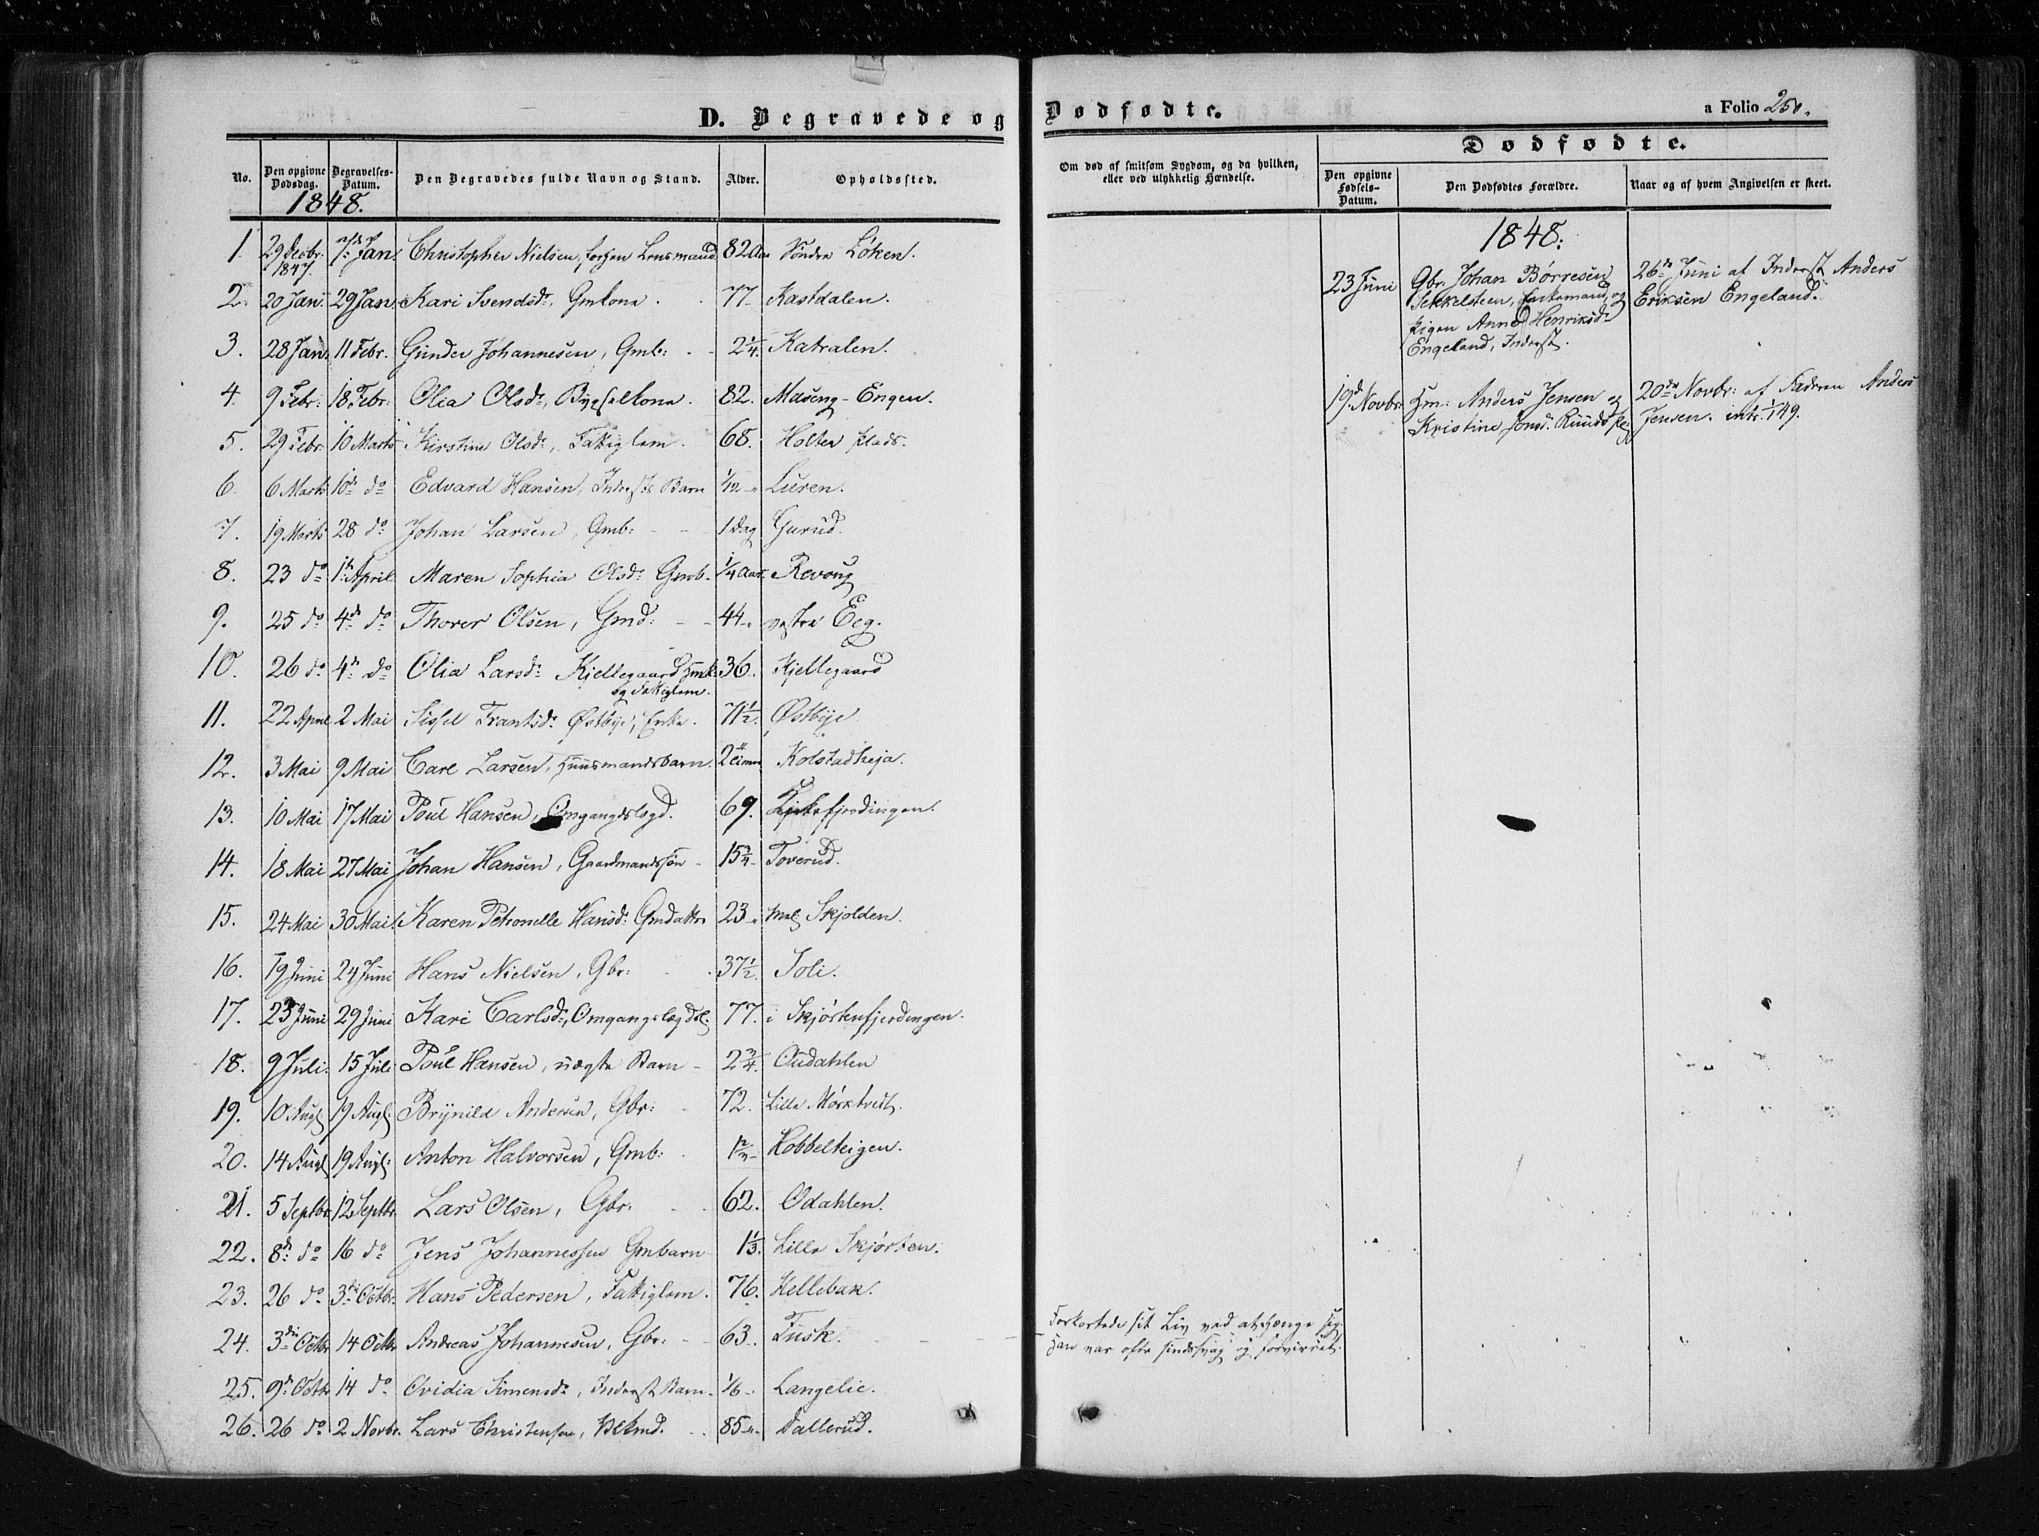 D. Begravede og Dødfødte.
a Folio 250.
No.
Den opgivne Dødsdag.
Begravelses-Datum.
Den Begravedes fulde Navn og Stand.
Alder.
Opholdssted.
Om død af smitsom Sygdom, og da hvilken, eller ved ulykkelig Hændelse.
Dødfødte.
Den opgivne Fødsels-Datum.
Den Dødfødtes Forældre.
Naar og af hvem Angivelsen er skeet.
1848.
1. 29 Decbr. 1847. 7de Jan Christopher Nielsen, forhen Lensmand 82 Aar Søndre Løken.
2. 20 Jan: 29 Jan. Kari Svendsd:, Gmkone. 77 Kastdalen.
3. 28 Jan. 11 Febr. Gunder Johannesen, Gmb: 2 1/4. Katralen.
4. 9 Febr: 18 Febr: Olia Olsd:, Bygselkone. 82. Maseng-Engen.
5. 29 Febr. 10 Marts Kirstine Olsd:, Fattiglem. 68. Holter plads.
6. 6 Marts 10de do Edvard Hansen, Inderst: Barn 1/12 Luren.
7. 19 Marts 28 do Johan Larsen, Gmb: 1 Dag Gurud.
8. 23 do 1te April Maren Sophia Olsd: Gmb. 1/4 Aar. Revoug
9. 25 do 4de do Thorer Olsen, Gmd: 44 vestre Eeg.
10. 26 do 4de do Olia Larsd: Kjellegaard 36. Kjellegaard
og Fattiglem.
11. 22 April 2 Mai Sissel Frantsd: Østbye, Enke. 71 1/2. Østbye.
12. 3 Mai 9 Mai Carl Larsen, Huusmandsbarn. 2 Kolstadheja.
13. 10 Mai 17 Mai Poul Hansen, Omgangslægd. 69. Kirkefjerdingen.
14. 18 Mai 27 Mai Johan Hansen, Gaardmandssøn 15 3/4. Toverud.
15. 24 Mai 30 Mai. Karen Petronelle Hansd: Gmdatter 23 Skjolden.
16. 19 Juni 24 Juni Hans Nielsen, Gbr: 37 1/2. Toli.
17. 23 Juni 29 Juni Kari Carlsd:, Omgangslægdsl. 77. i Skjørtenfjerdingen.
18. 9 Juli: 15 Juli Poul Hansen, uægte Barn 2 3/4. Oudahlen
19. 10 Augst 19 Augst Brynild Andersen, Gbr: 72. Lille Mørktvedt.
20. 14 Augst 19 Augst: Anton Halvorsen, Gmb: Hobbelteigen.
21. 5 Septbr. 12 Septbr. Lars Olsen, Gbr: 62. Odahlen.
22. 8de do 16 do Jens Johannessen Gmbarn 1 1/3. Lille Skjørten.
23. 26 do 3die Octbr. Hans Pedersen, Fattiglem. 76. Hellebæk.
24. 3die Octbr 14 Octbr Andreas Johannesen, Gbr: 63. Tusk.
Forkortede sit Liv ved at hænge sig.
Han var ofte sindssvag og forvirret.
25. 9de Octbr 14 do Ovidia Simensd:, Inderst Barn. 1/6 Langelie.
26. 26 do 2 Novbr. Lars Christensen, 85 Dallerud.
1848:
23 Juni Gbr. Johan Børresen 26de Juni af Inderst Anders
Sekkelsteen, Enkemand, og Eriksen Engeland.
Pigen Anne Henriksd:
Engeland, Inderst.
19de Novbr. Hm: Anders Jensen og 20de Novbr: af Faderen Anders
Kristine Jensd: Ruuds pl. Jensen. intr: 149.